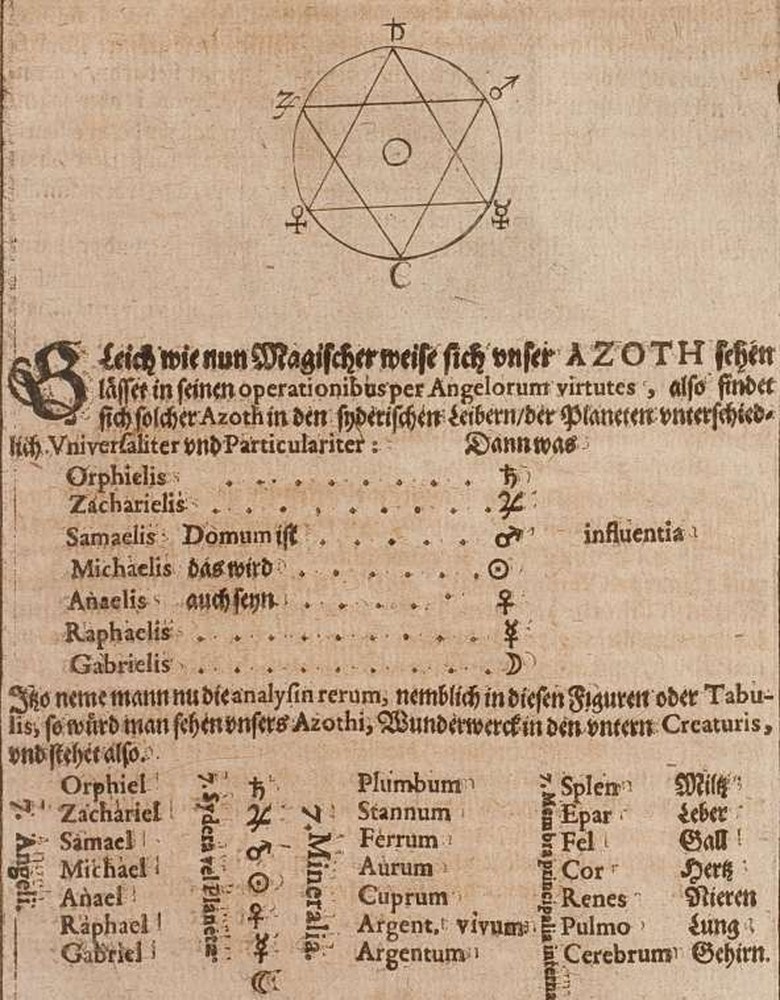 ♄
♃ ♂
☉
♀ ☿
☾
Gleich wie nun Magischer weise sich vnser AZOTH sehen
lässet in seinen operationibus per Angelorum virtutes, also findet
sich solcher Azoth in den syderischen Leibern/der Planeten vnterschied-
lich. Vniversaliter vnd Particulariter: Dann was
Orphielis . . . . . . . . . ♄
Zacharielis . . . . . . . . . ♃
Samaelis Domum ist . . . . . ♂ influentia
Michaelis das wird . . . . . . ☉
Anaelis auch seyn . . . . . ♀
Raphaelis . . . . . . . . . ☿
Gabrielis . . . . . . . . . ☽
Itzo neme mann nu die analysin rerum, nemblich in diesen Figuren oder Tabu-
lis, so würd man sehen vnsers Azothi, Wunderwerck in den vntern Creaturis,
vnd stehet also.
7. Angeli.
7. Sydera vel Planetæ.
7. Mineralia.
7. Membra principalia interna
Orphiel ♄ Plumbum Splen Miltz
Zachariel ♃ Stannum Epar Leber
Samael ♂ Ferrum Fel Gall
Michael ☉ Aurum Cor Hertz
Anael ♀ Cuprum Renes Nieren
Raphael ☿ Argent. vivum Pulmo Lung
Gabriel ☾ Argentum Cerebrum Gehirn.